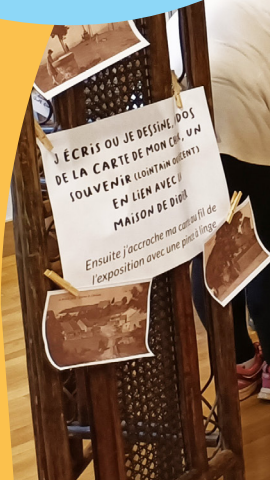 J'ÉCRIS OU JE DESSINE, DOS
DE LA CARTE DE MON CHOIX, UN
SOUVENIR (LOINTAIN OU RÉCENT)
EN LIEN AVEC LA
MAISON DE DIDIER
Ensuite j'accroche ma carte au fil de
l'exposition avec une pince à linge